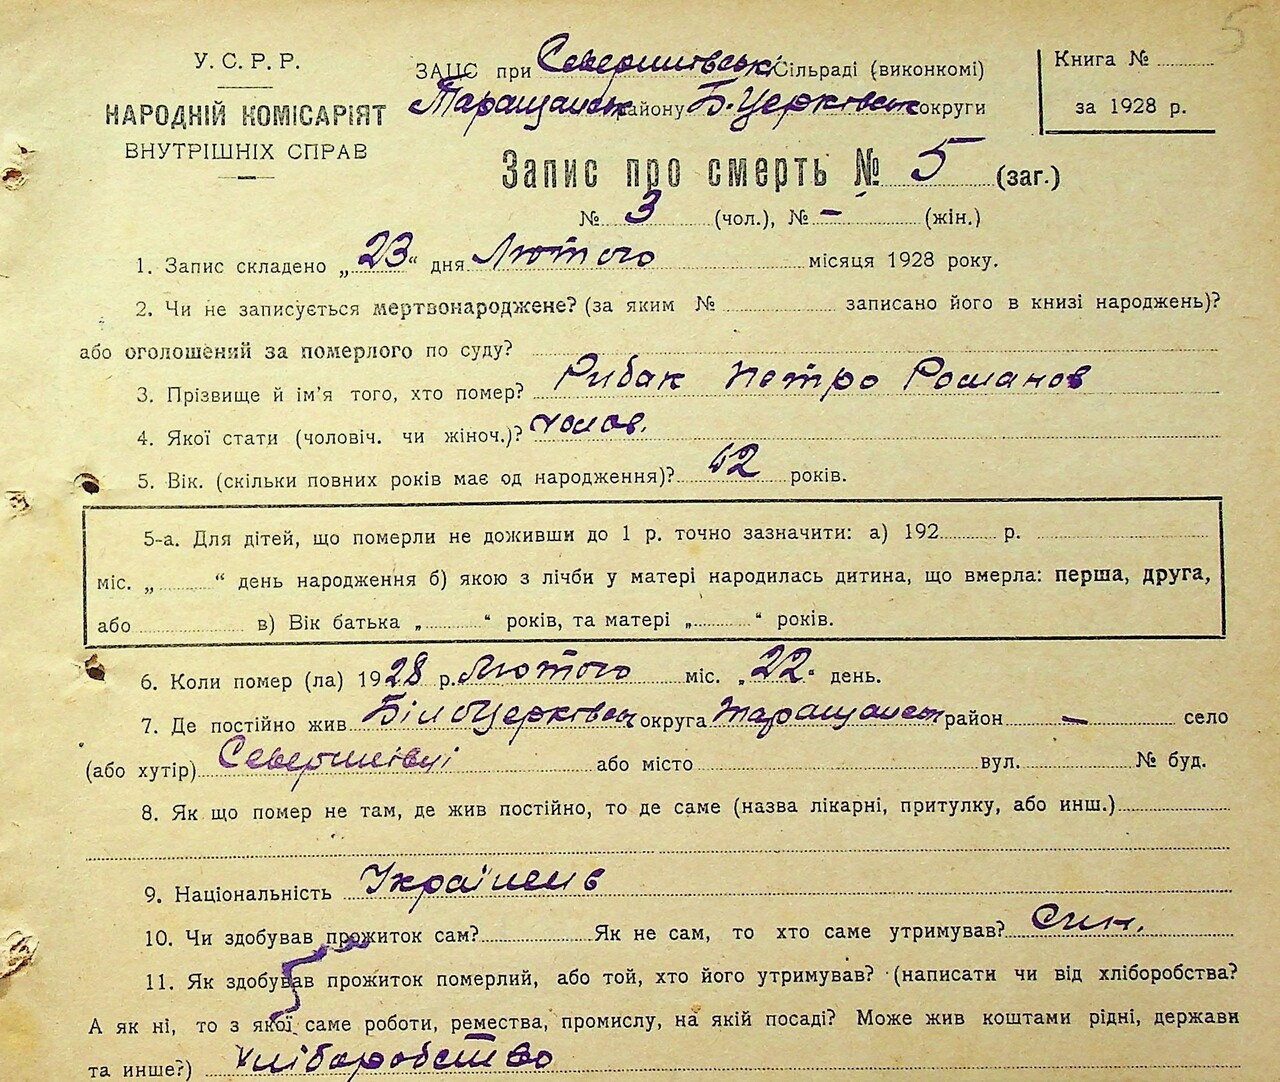 5
У. С. Р. Р.
НАРОДНІЙ КОМІСАРІЯТ
ВНУТРІШНІХ СПРАВ
ЗАЦС при Северинівськ Сільраді (виконкомі)
Таращанськ району Б. Церківськ округи
Книга №
за 1928 р.
Запис про смерть № 5 (заг.)
№ 3 (чол.), № – (жін.)
1. Запис складено „23“ дня Лютого місяця 1928 року.
2. Чи не записується мертвонароджене? (за яким № записано його в книзі народжень)?
або оголошений за померлого по суду?
3. Прізвище й ім'я того, хто помер? Рибак Петро Романов
4. Якої стати (чоловіч. чи жіноч.)? чолов.
5. Вік. (скільки повних років має од народження)? 52 років.
5-а. Для дітей, що померли не доживши до 1 р. точно зазначити: а) 192 р.
міс. „ “ день народження б) якою з лічби у матері народилась дитина, що вмерла: перша, друга,
або в) Вік батька „ “ років, та матері „ “ років.
6. Коли помер (ла) 1928 р. Лютого міс. „22“ день.
7. Де постійно жив БілоЦерківськ округа Таращанськ район – село
(або хутір) Северинівці або місто вул. № буд.
8. Як що помер не там, де жив постійно, то де саме (назва лікарні, притулку, або инш.)
9. Національність Українець
10. Чи здобував прожиток сам? Як не сам, то хто саме утримував? Син.
11. Як здобував прожиток померлий, або той, хто його утримував? (написати чи від хліборобства?
А як ні, то з якої саме роботи, ремества, промислу, на якій посаді? Може жив коштами рідні, держави
та инше?) Хліборобство